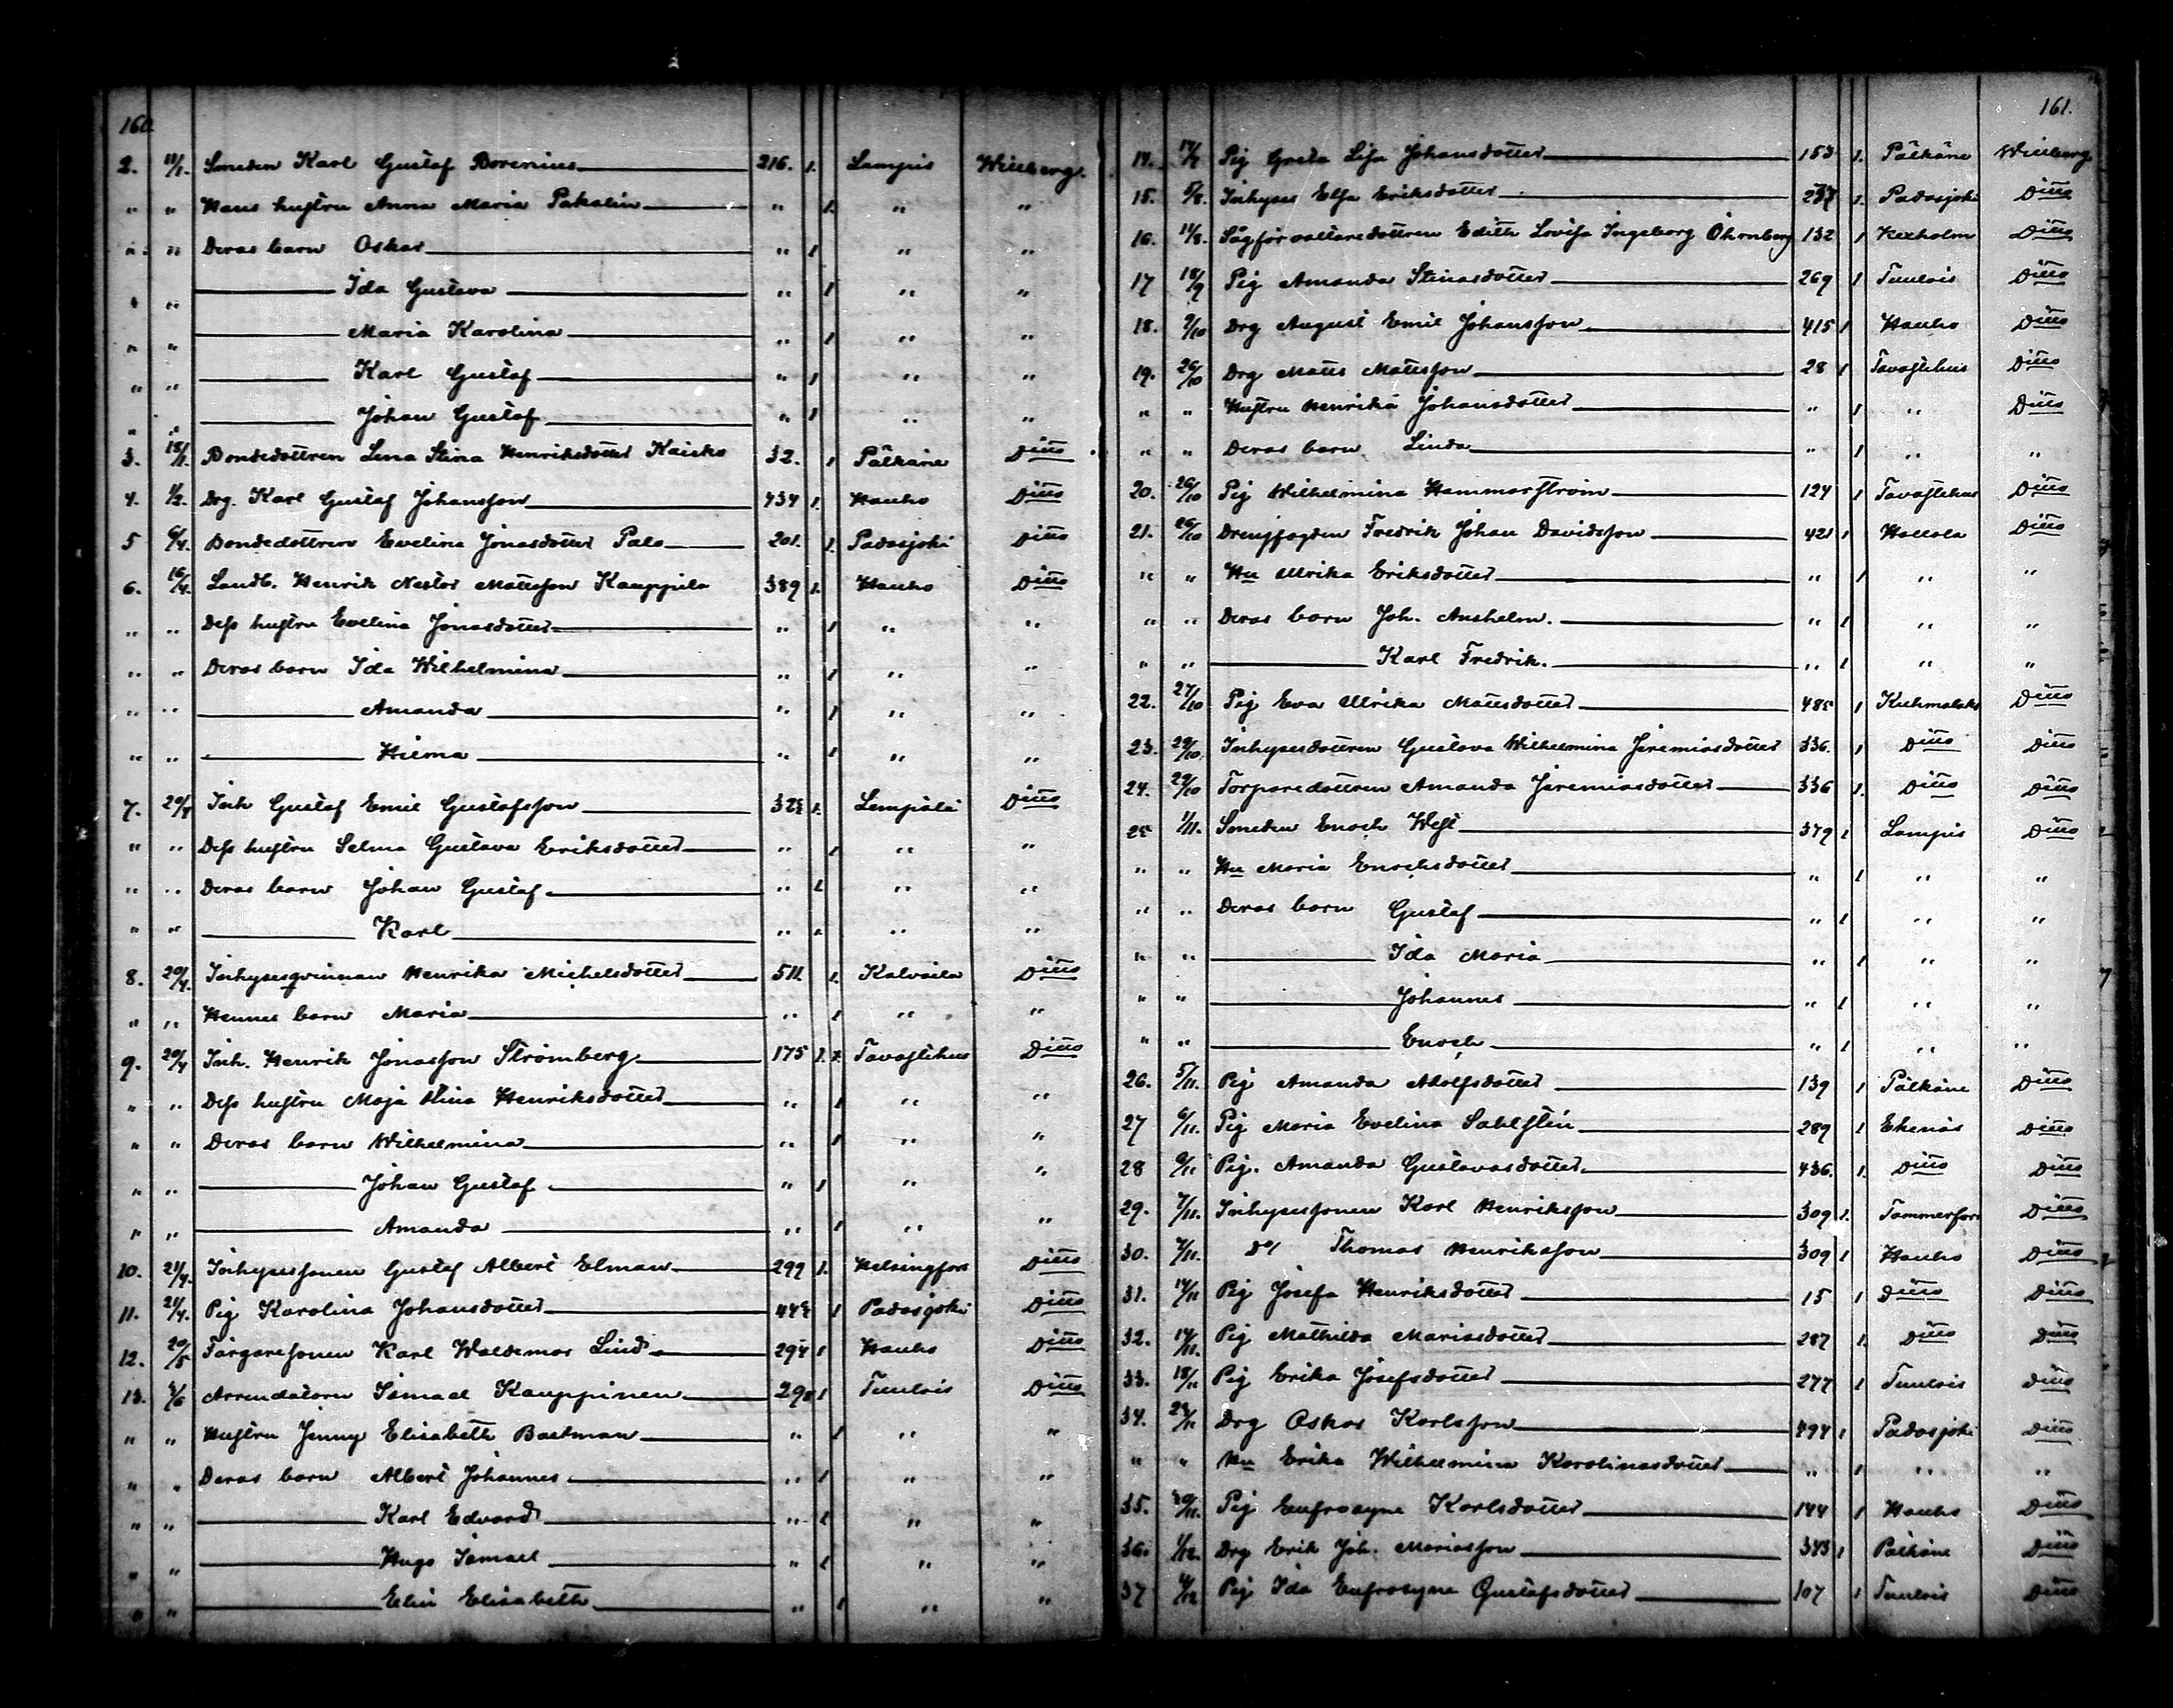 160
2. 11/1. Smeden Karl Gustaf Borenius 216. 1. Lampis Willberg.
" " Hans hustru Anna Maria Pakalin " 1. " "
" " Deras barn Oskar " 1 " "
" " Ida Gustava " 1 " "
" " Maria Karolina " 1 " "
" " Karl Gustaf " 1 " "
" " Johan Gustaf " 1 " "
3. 18/1. Bondedottren Lena Stina Henriksdotter Kaisko 32. 1 Pälkäne Ditto
4. 1/2. Drg. Karl Gustaf Johansson 434 1. Hauho Ditto
5 6/4. Bondedottren Evelina Jonasdotter Palo 201. 1. Padasjoki Ditto
6. 16/4. Landb. Henrik Nestor Mattsson Kauppila 389 1. Hauho Ditto
" " Dess hustru Evelina Jonasdotter " 1 " "
" " Deras barn Ida Wilhelmina " 1 " "
" " Amanda " 1 " "
" " Hilma " 1 " "
7. 20/4 Inh Gustaf Emil Gustafsson 1. Lempälä Ditto
" " Dess hustru Selma Gustava Eriksdotter " 1 " "
" " Deras barn Johan Gustaf " 1 " "
" " Karl " 1 " "
8. 20/4. Inhysesqvinnan Henrika Michelsdotter 511. 1. Kalvoila Ditto
" " Hennes barn Maria " 1 " "
9. 20/4 Inh. Henrik Jonasson Strömberg 175 1. Tavastehus Ditto
" " Dess hustru Maja Stina Henriksdotter " 1 " "
" " Deras barn Wilhelmina " 1 " "
" " Johan Gustaf " 1 " "
" " Amanda " 1 " "
10. 21/4. Inhysessonen Gustaf Albert Elman 299 1. Helsingfors Ditto
11. 21/4. Pig Karolina Johansdotter 1 Padasjoki Ditto
12. 20/5 Färgaresonen Karl Waldemar Lind 294 1 Hauho Ditto
13. Arrendatorn Ismael Kauppinen 298 1 Tuulois Ditto
" " Hustru Jenny Elisabeth Bastman " 1 " "
" " Deras barn Albert Johannes " 1 " "
" " Karl Edvard " 1 " "
" " Hugo Ismael " 1 " "
" " Elin Elisabeth " 1 " "
161.
14. 14/7 Pig Greta Lisa Johansdotter 153 1. Pälkäne Willberg
15. 5/8. Inhyses Elsa Eriksdotter 1. Padasjoki Ditto
16. 11/8. Sågförvaltaredottren Edith Lovisa Ingeborg Öhrnberg 132 1 Kexholm Ditto
17 18/9 Pig Amanda Stinasdotter 269 1 Tuulois Ditto
18. 9/10 Drg August Emil Johansson 415 1 Hauho Ditto
19. 26/10 Drg Matts Mattsson 28 1 Tavastehus Ditto
" " Hustru Henrika Johansdotter " 1 " Ditto
" " Deras barn Linda " 1 " "
20. 26/10 Pig Wilhelmina Hammarström 124 1 Tavastehus Ditto
21. 26/10 Drengfogden Fredrik Johan Davidsson 421 1 Hollola Ditto
" " Hu Ulrika Eriksdotter " 1 " "
" " Deras barn Joh. Anshelm. " 1 " "
" " Karl Fredrik. " 1 " "
22. 27/10 Pig Eva Ulrika Mattsdotter 485 1 Kuhmalaks Ditto
23. 29/10. Inhysesdottren Gustava Wilhelmina Jeremiasdotter 336. 1 Ditto Ditto
24. 29/10 Torparedottren Amanda Jeremiasdotter 336 1. Ditto Ditto
25 1/11. Smeden Enoch West 379 1 Lampis Ditto
" " Hu Maria Enochsdotter " 1 " "
" " Deras barn Gustaf " 1 " "
" " Ida Maria " 1 " "
" " Johannes " 1 " "
" " Enoch " 1 " "
26. 5/11. Pig Amanda Adolfsdotter 139 1 Pälkäne Ditto
27 6/11. Pig Maria Evelina Sahlstén 289 1 Ekenäs Ditto
28 6/11 Pig. Amanda Gustavasdotter 436. 1. Ditto Ditto
29. 7/11. Inhysessonen Karl Henriksson 309 1. Tammerfors Ditto
30. 7/11. do/ Thomas Henriksson 309 1 Hauho Ditto
31. 14/11 Pig Josefa Henriksdotter 15 1 Ditto Ditto
32. 14/11. Pig Mathilda Mariasdotter 287 1. Ditto Ditto
33. 18/11 Pig Erika Josefsdotter 277 1 Tuulois Ditto
34. Drg Oskar Karlsson 494 1 Padasjoki Ditto
" " Hu Erika Wilhelmina Karolinasdotter " 1 " "
35. Pig Eufrosyne Karlsdotter 144 1 Hauho Ditto
36. 1/12. Drg Erik Joh. Mariasson 343 1 Pälkäne Ditto
37 Pig Ida Eufrosyne Gustafsdotter 107 1 Tuulois Ditto